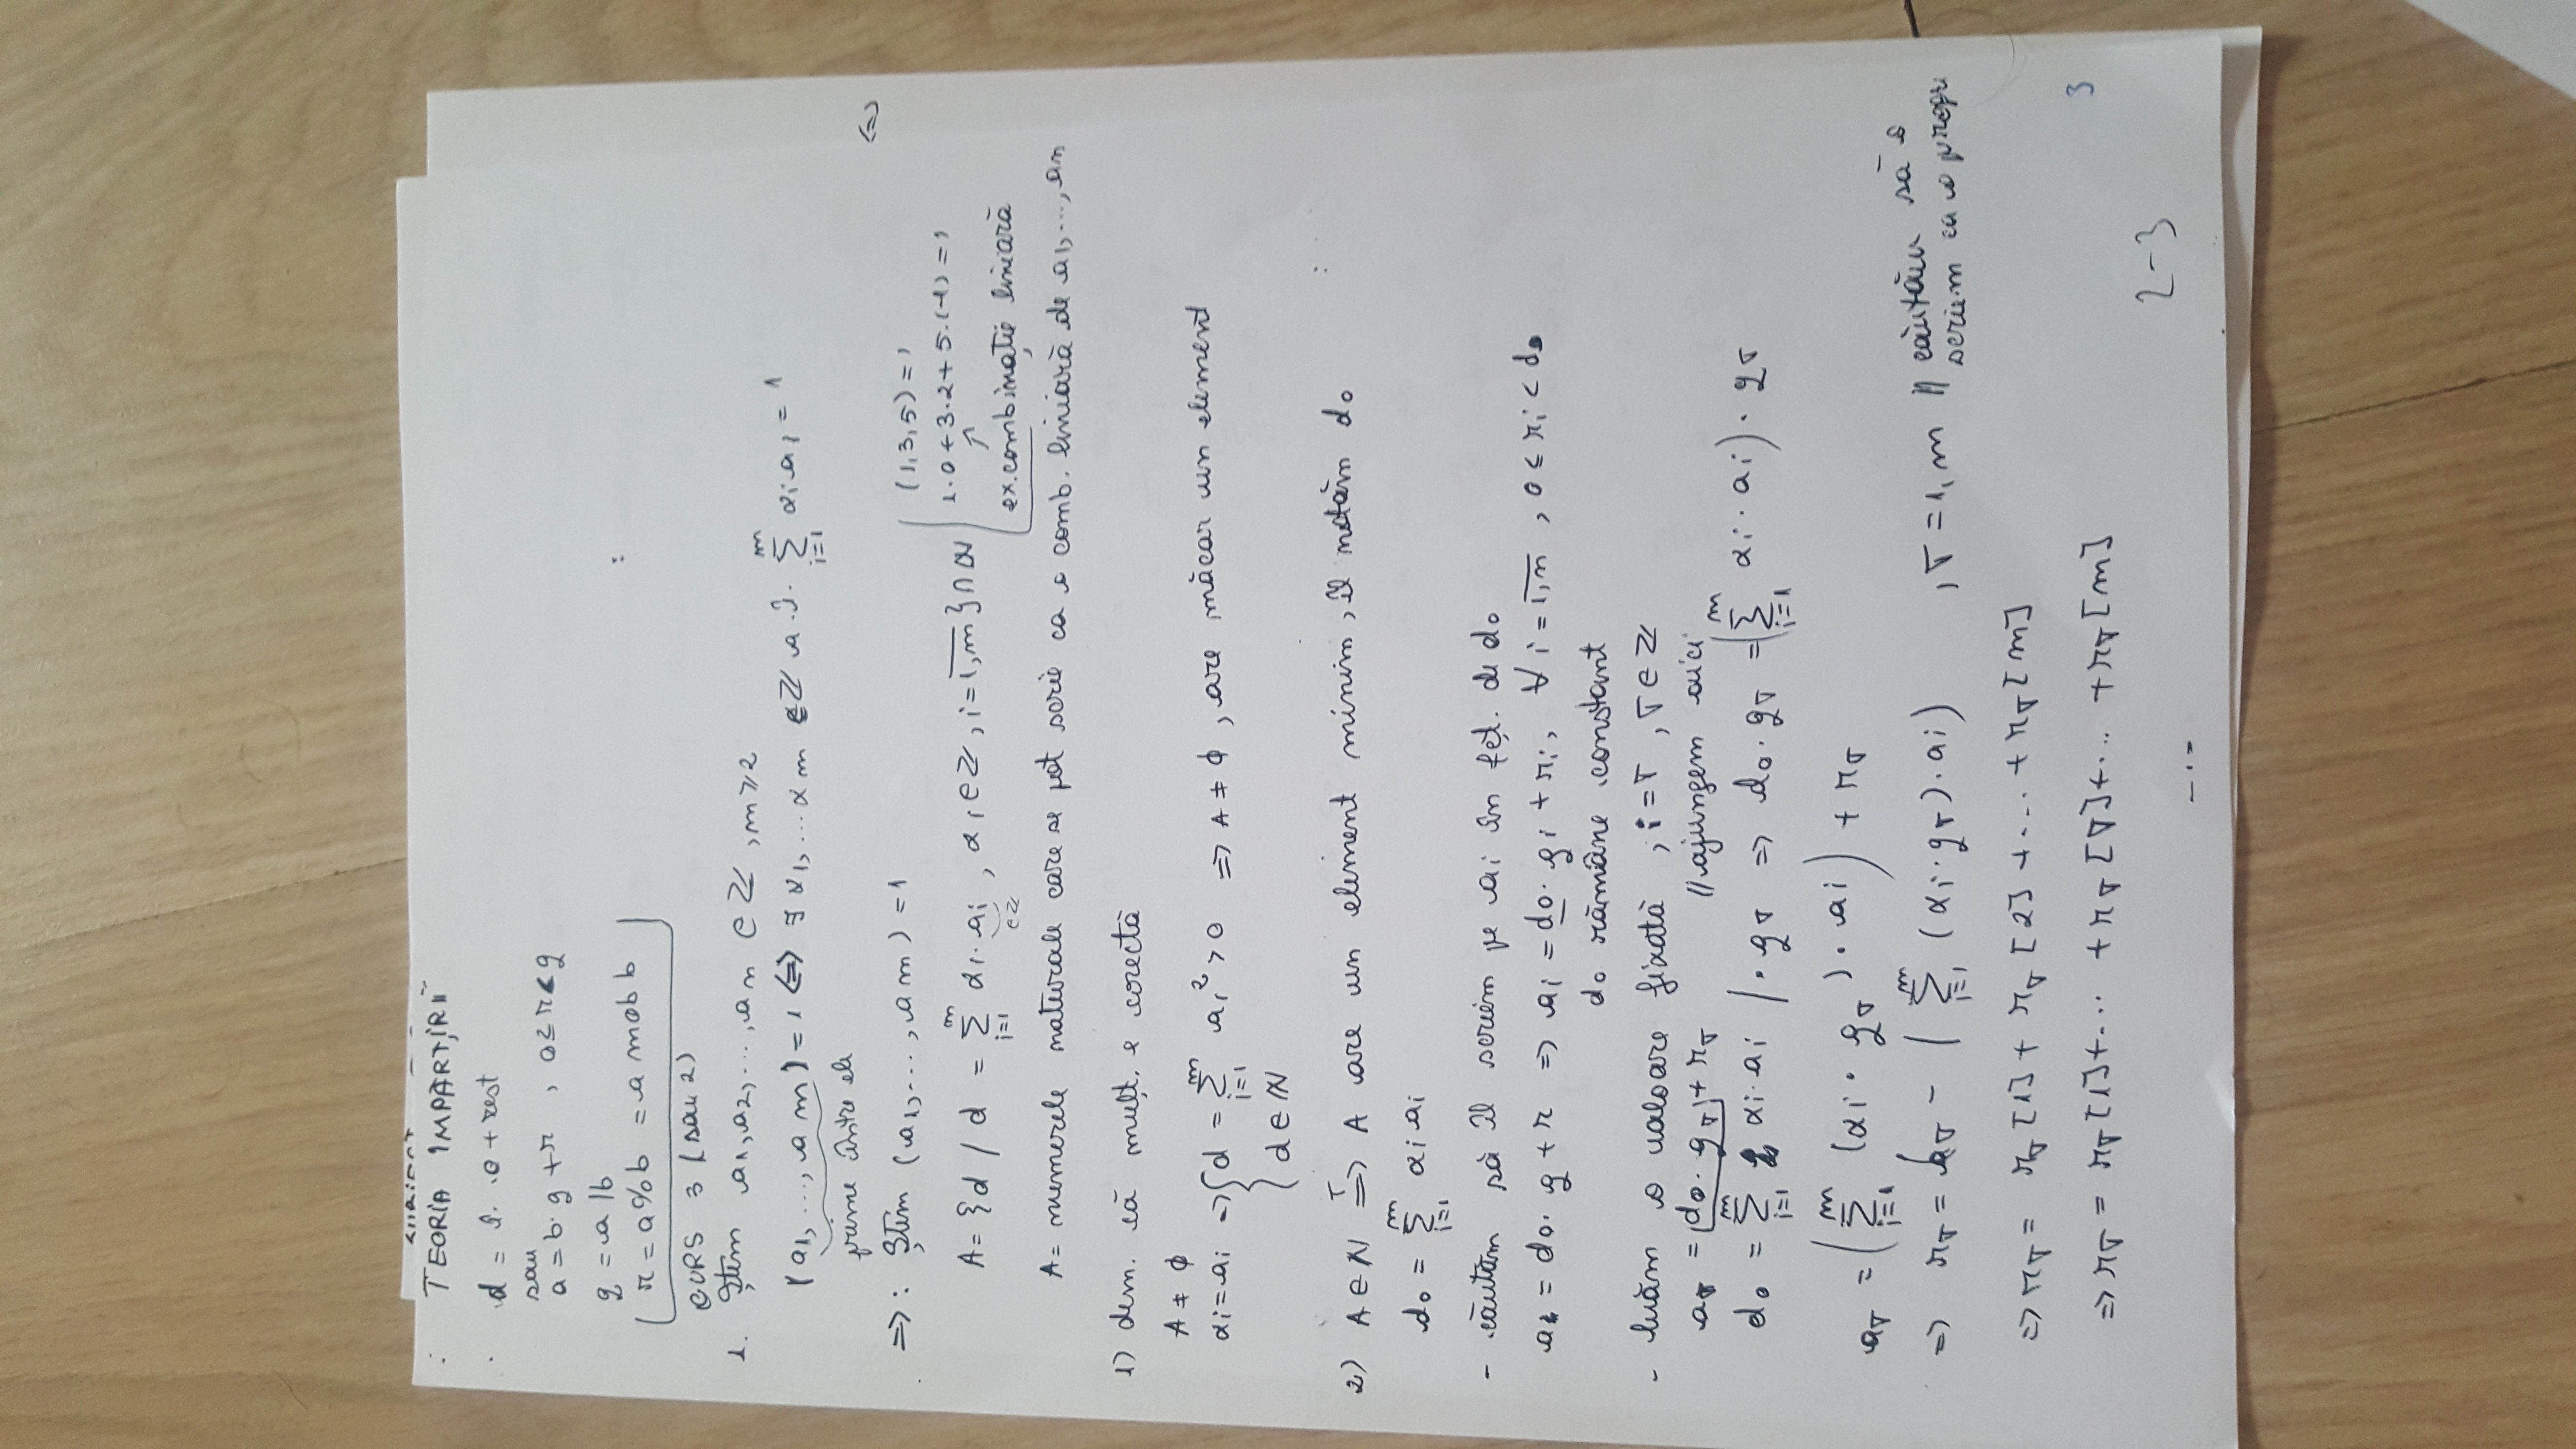 TEORIA IMPĂRȚIRII
d = î. .c + rest
sau
a = b· q + r , 0 ≤ r < q
q = a / b
r = a % b = a mob b
CURS 3 (sau 2)
1. Știm a1, a2, ..., an ∈ ℤ , m ≥ 2
(a1, ..., am) = 1 <=> ∃ α1, ... αm ∈ ℤ a.î. ∑ i=1 m αi ai = 1
prime între ele
=> : Știm (a1, ..., am) = 1
<=>
(1,3,5) = 1
1·0 + 3·2 + 5·(-1) = 1
ex. combinație liniară
A = {d / d = ∑ i=1 m αi · ai , αi ∈ ℤ, i = 1,m } ∩ ℕ
∈ ℤ
A = numerele naturale care se pot scrie ca o comb. liniară de a1, ..., an
1) dem. că mulț. e corectă
A ≠ ϕ
αi = ai => { d = ∑ i=1 m ai² > 0 => A ≠ ϕ , are măcar un element
d ∈ ℕ
2) A ∈ ℕ =T=> A are un element minim, îl notăm d0
d0 = ∑ i=1 m αi ai
- căutăm să îl scriem pe ai în fcț. de d0
= d0· q + r => ai = d0· qi + ri, ∀ i = 1,n , 0 ≤ ri < d0
d0 rămâne constant
- luăm o valoare fixată , i = T , T ∈ ℤ
aT = d0· qT + rT // ajungem aici
d0 = ∑ i=1 m αi· ai | · qT => d0· qT = (∑ i=1 m αi · ai) · qT
aT = (∑ i=1 m (αi · qT) · ai) + rT
=> rT = aT - (∑ i=1 m (αi · qT) · ai) , T = 1, m // căutăm să o
scriem ca o
=> rT = rT [1] + rT [2] + ... + rT [m]
=> rT = rT [1] + ... + rT [T] + ... + rT [m]
3
2-3